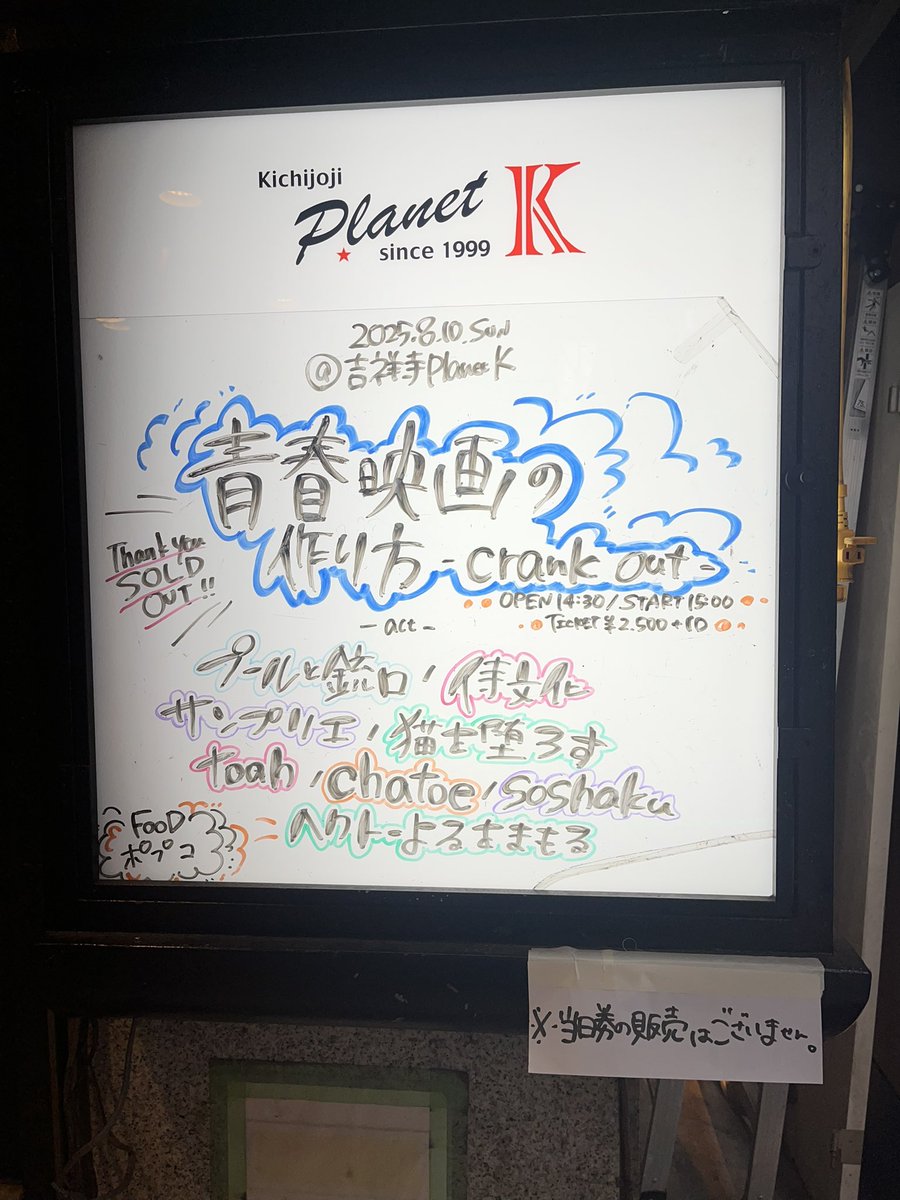 Kichijoji
Planet K
since 1999
2025.8.10.SUN
@吉祥寺Planet K
青春映画の
作り方 -crank out-
Thank you
SOLD
OUT!!
OPEN 14:30/START 15:00
TICKET ¥2.500+1D
-act-
プールと銃口/侍文化
サンプリエ/猫を堕ろす
toah/chatoe/soshaku
ヘクトーよるをまもる
FOOD
ポプコ
※当日券の販売はございません。